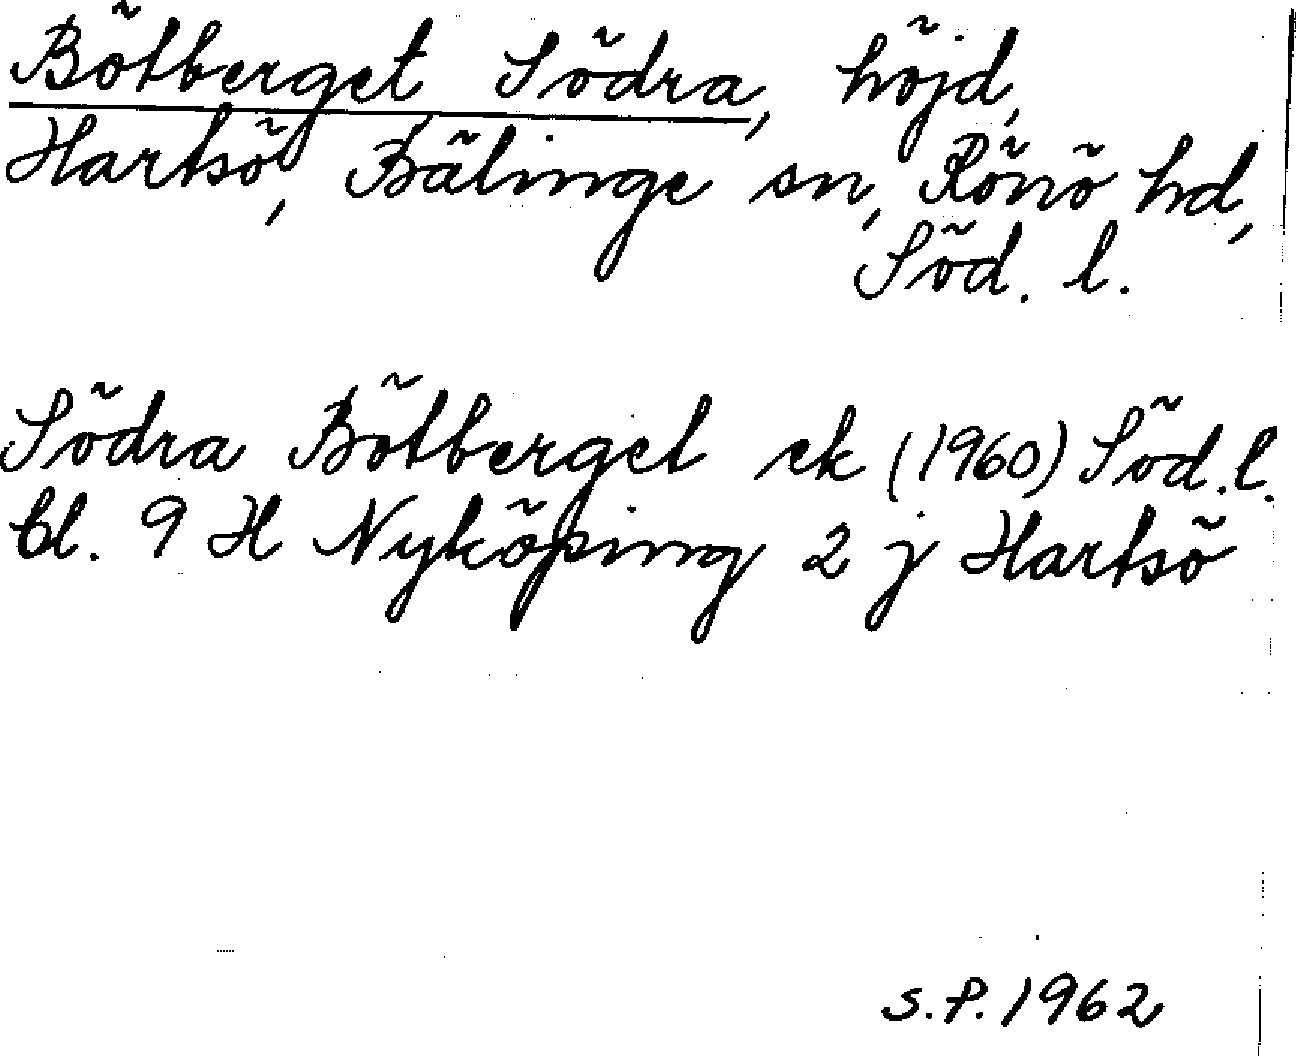 Bötberget Södra, höjd,
Hartsö, Bälinge sn, Rönö hd,
Söd. l.
Södra Bötberget ek (1960) Söd. l.
bl. 9 H Nyköping 2 j Hartsö
S.P. 1962